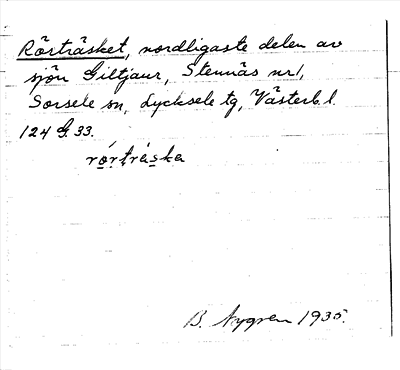 Rörträsket, nordligaste delen av
sjön Giltjaur, Stennäs nr 1,
Sorsele sn, Lycksele tg, Västerb. l.
124 G. 33.
rórtràska
B. Nygren 1935.